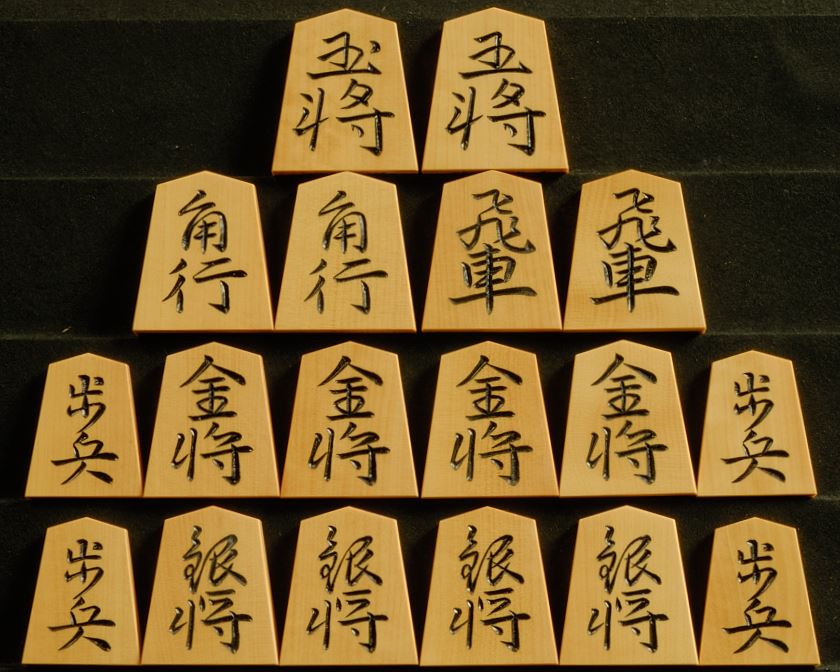 玉将 王将
角行 角行 飛車 飛車
歩兵 金将 金将 金将 金将 歩兵
歩兵 銀将 銀将 銀将 銀将 歩兵